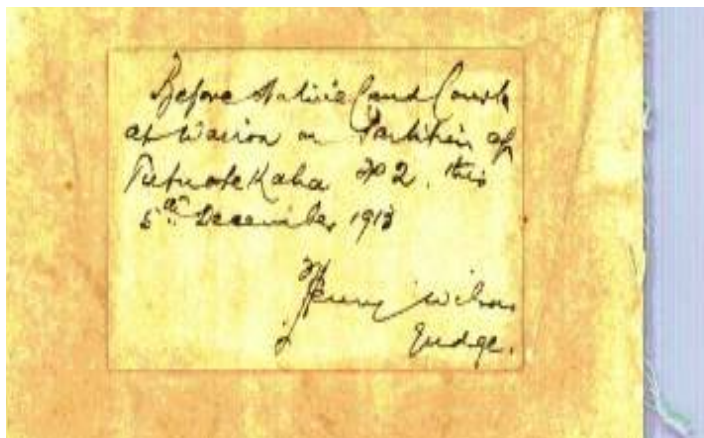 Before Native Land Court
at Wairoa on Partition of
Tutuotekaha 2. this
5th December 1913
Henry Wilson
Judge.